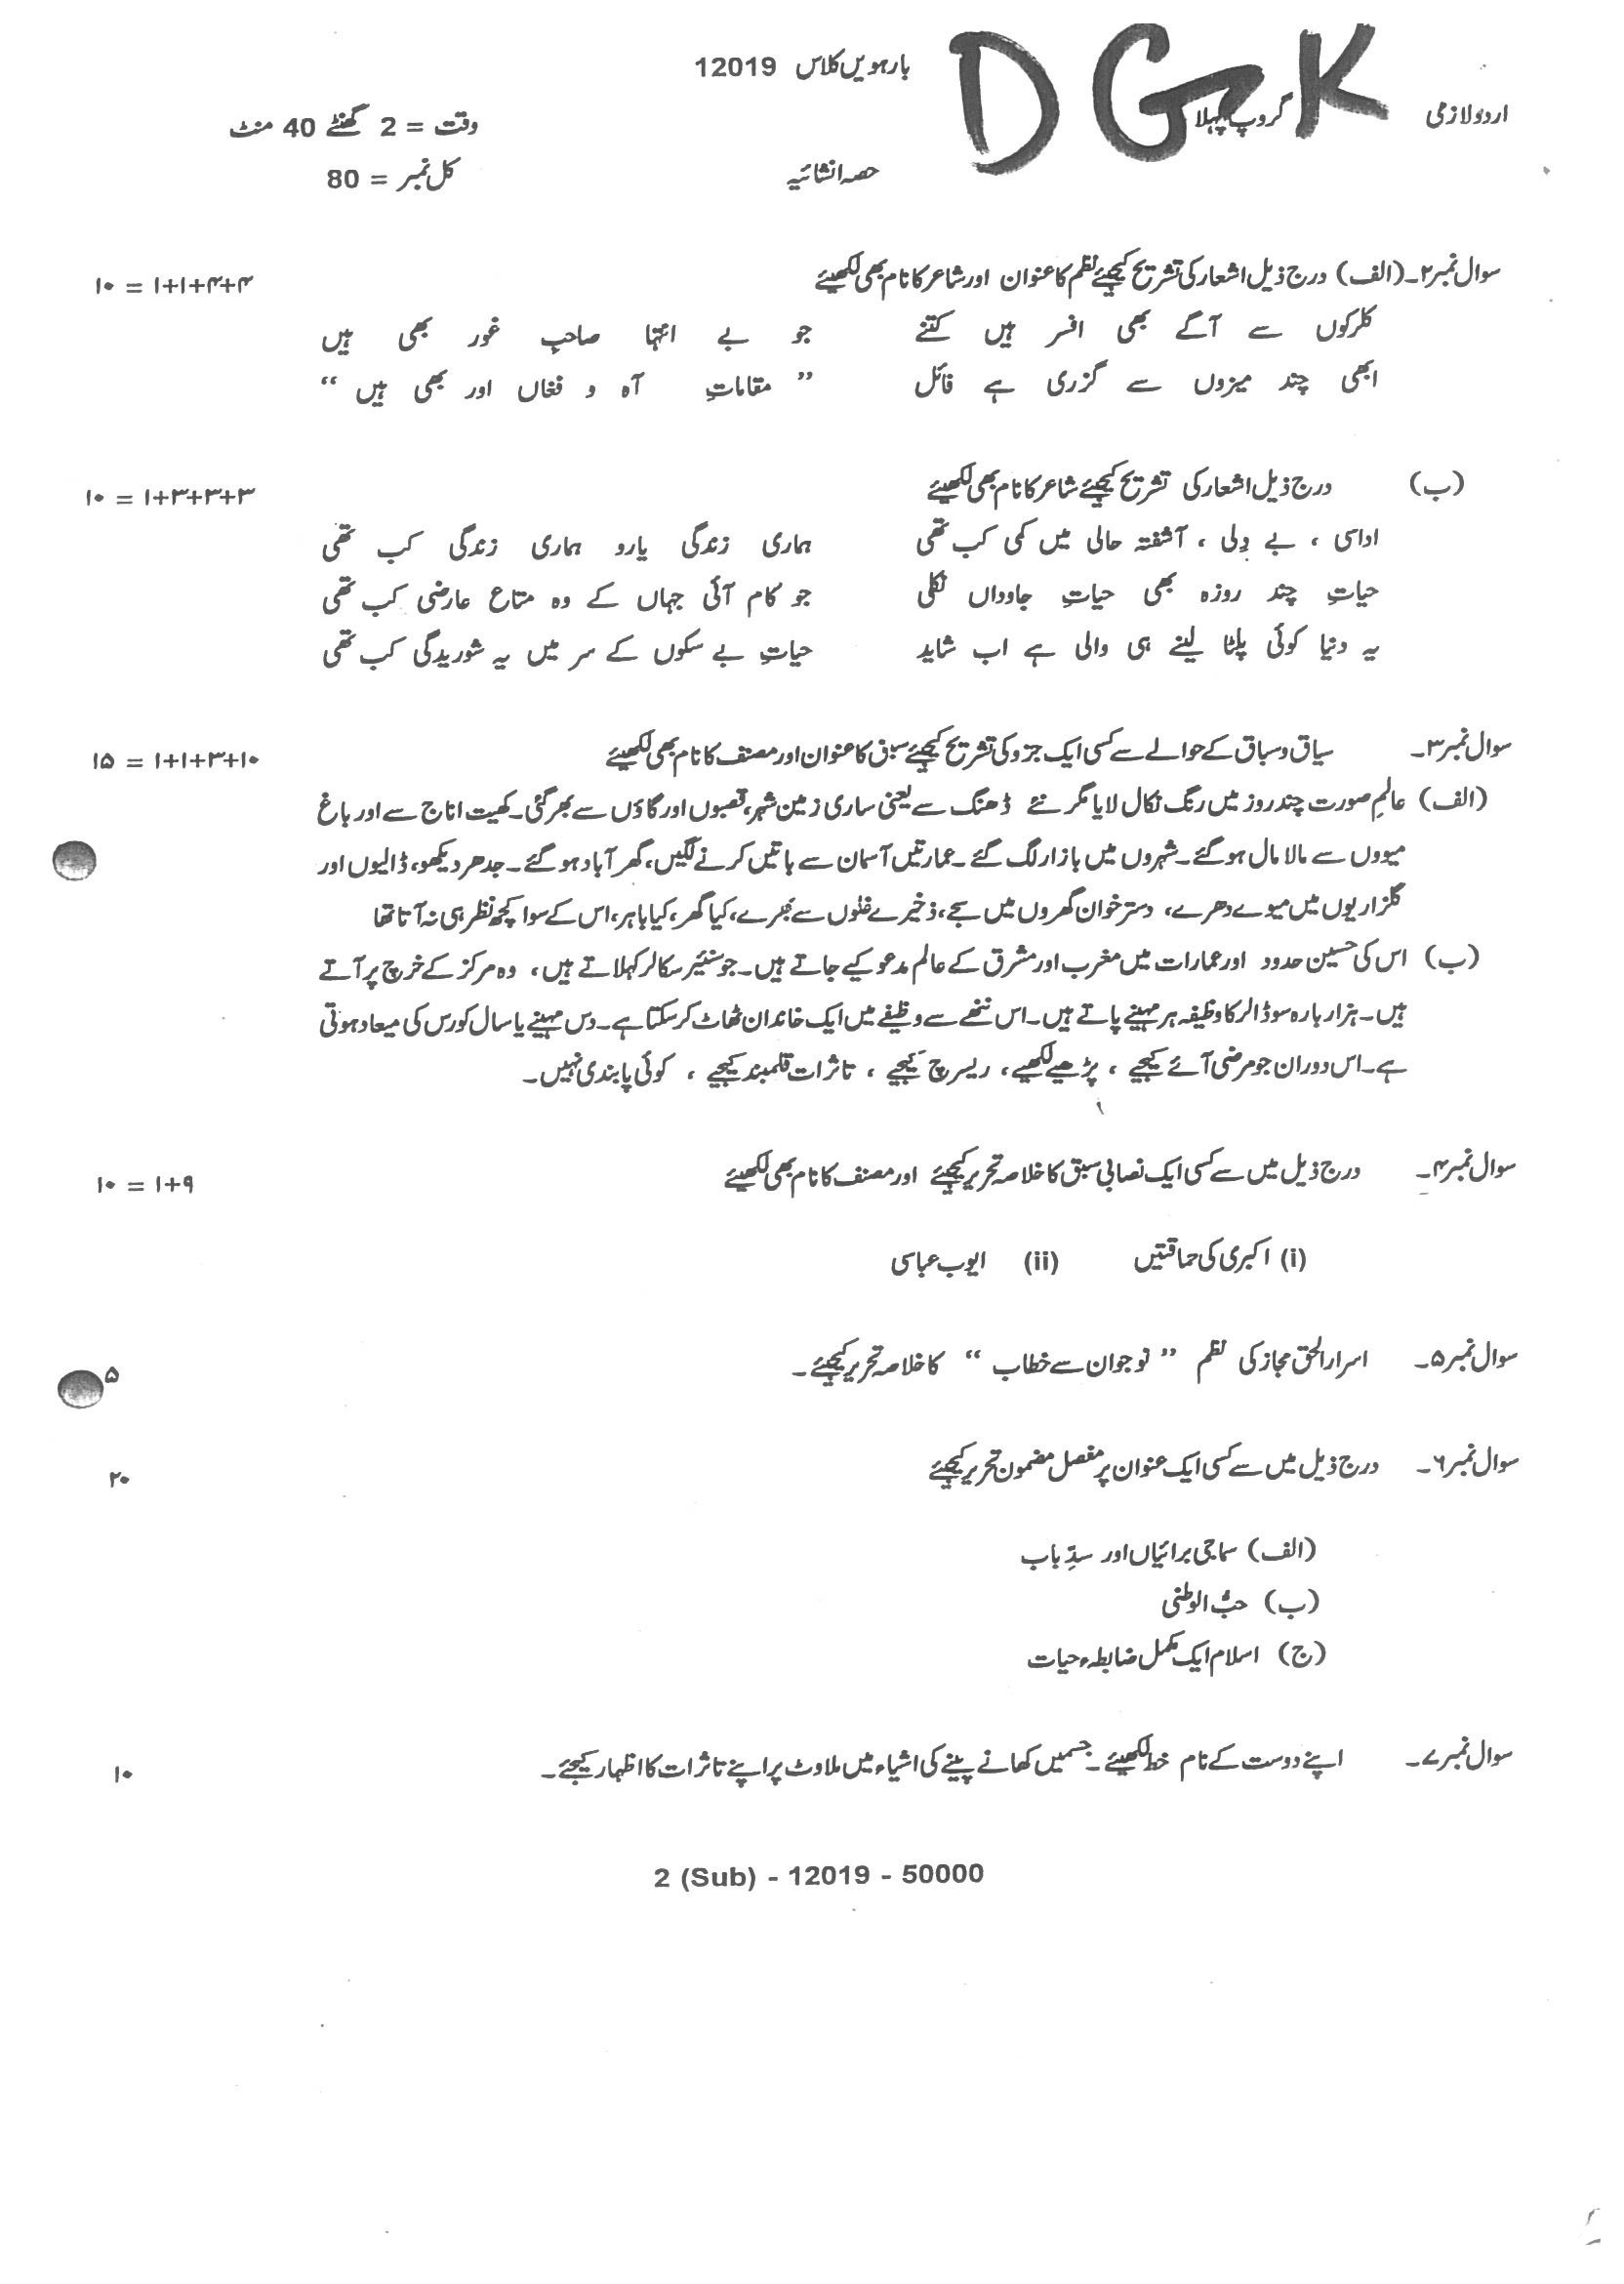 DGK
اردو لازمی گروپ پہلا بارہویں کلاس 12019
وقت = 2 گھنٹے 40 منٹ
حصہ انشائیہ کل نمبر = 80
سوال نمبر ۲۔ (الف) درج ذیل اشعار کی تشریح کیجیئے نظم کا عنوان اور شاعر کا نام بھی لکھیئے ۴+۴+۱+۱ = ۱۰
کلرکوں سے آگے بھی افسر ہیں کتنے جو بے انتہا صاحبِ غور بھی ہیں
ابھی چند میزوں سے گزری ہے فائل ” مقاماتِ آہ و فغاں اور بھی ہیں “
(ب) درج ذیل اشعار کی تشریح کیجیئے شاعر کا نام بھی لکھیئے ۳+۳+۳+۱ = ۱۰
اداسی ، بے دِلی ، آشفتہ حالی میں کمی کب تھی ہماری زندگی یارو ہماری زندگی کب تھی
حیاتِ چند روزہ بھی حیاتِ جاوداں نکلی جو کام آئی جہاں کے وہ متاع عارضی کب تھی
یہ دنیا کوئی پلٹا لینے ہی والی ہے اب شاید حیاتِ بے سکوں کے سر میں یہ شوریدگی کب تھی
سوال نمبر ۳۔ سیاق و سباق کے حوالے سے کسی ایک جزو کی تشریح کیجیئے سبق کا عنوان اور مصنف کا نام بھی لکھیئے ۱۰+۳+۱+۱ = ۱۵
(الف) عالمِ صورت چند روز میں رنگ نکال لایا مگر نئے ڈھنگ سے یعنی ساری زمین شہر، قصبوں اور گاؤں سے بھر گئی۔ کھیت اناج سے اور باغ
میووں سے مالا مال ہو گئے۔ شہروں میں بازار لگ گئے ۔ عمارتیں آسمان سے باتیں کرنے لگیں، گھر آباد ہو گئے۔ جدھر دیکھو، ڈالیوں اور
گلزاریوں میں میوے دھرے، دستر خوان گھروں میں سجے، ذخیرے غلوں سے بھرے، کیا گھر، کیا باہر، اس کے سوا کچھ نظر ہی نہ آتا تھا
(ب) اس کی حسین حدود اور عمارات میں مغرب اور مشرق کے عالم مدعو کیے جاتے ہیں۔ جو سنیئر سکالر کہلاتے ہیں، وہ مرکز کے خرچ پر آتے
ہیں۔ ہزار بارہ سو ڈالر کا وظیفہ ہر مہینے پاتے ہیں۔ اس ننھے سے وظیفے میں ایک خاندان ٹھاٹ کر سکتا ہے۔ دس مہینے یا سال کورس کی میعاد ہوتی
ہے۔ اس دوران جو مرضی آئے کیجیے ، پڑھیے لکھیے، ریسرچ کیجیے ، تاثرات قلمبند کیجیے ، کوئی پابندی نہیں۔
سوال نمبر ۴۔ درج ذیل میں سے کسی ایک نصابی سبق کا خلاصہ تحریر کیجیئے اور مصنف کا نام بھی لکھیئے ۹+۱ = ۱۰
(i) اکبری کی حماقتیں (ii) ایوب عباسی
سوال نمبر ۵۔ اسرار الحق مجاز کی نظم ” نوجوان سے خطاب “ کا خلاصہ تحریر کیجیئے۔ ۵
سوال نمبر ۶۔ درج ذیل میں سے کسی ایک عنوان پر مفصل مضمون تحریر کیجیئے ۲۰
(الف) سماجی برائیاں اور سدِّ باب
(ب) حبُّ الوطنی
(ج) اسلام ایک مکمل ضابطہء حیات
سوال نمبر ۷۔ اپنے دوست کے نام خط لکھیئے۔ جسمیں کھانے پینے کی اشیاء میں ملاوٹ پر اپنے تاثرات کا اظہار کیجیئے۔ ۱۰
2 (Sub) - 12019 - 50000